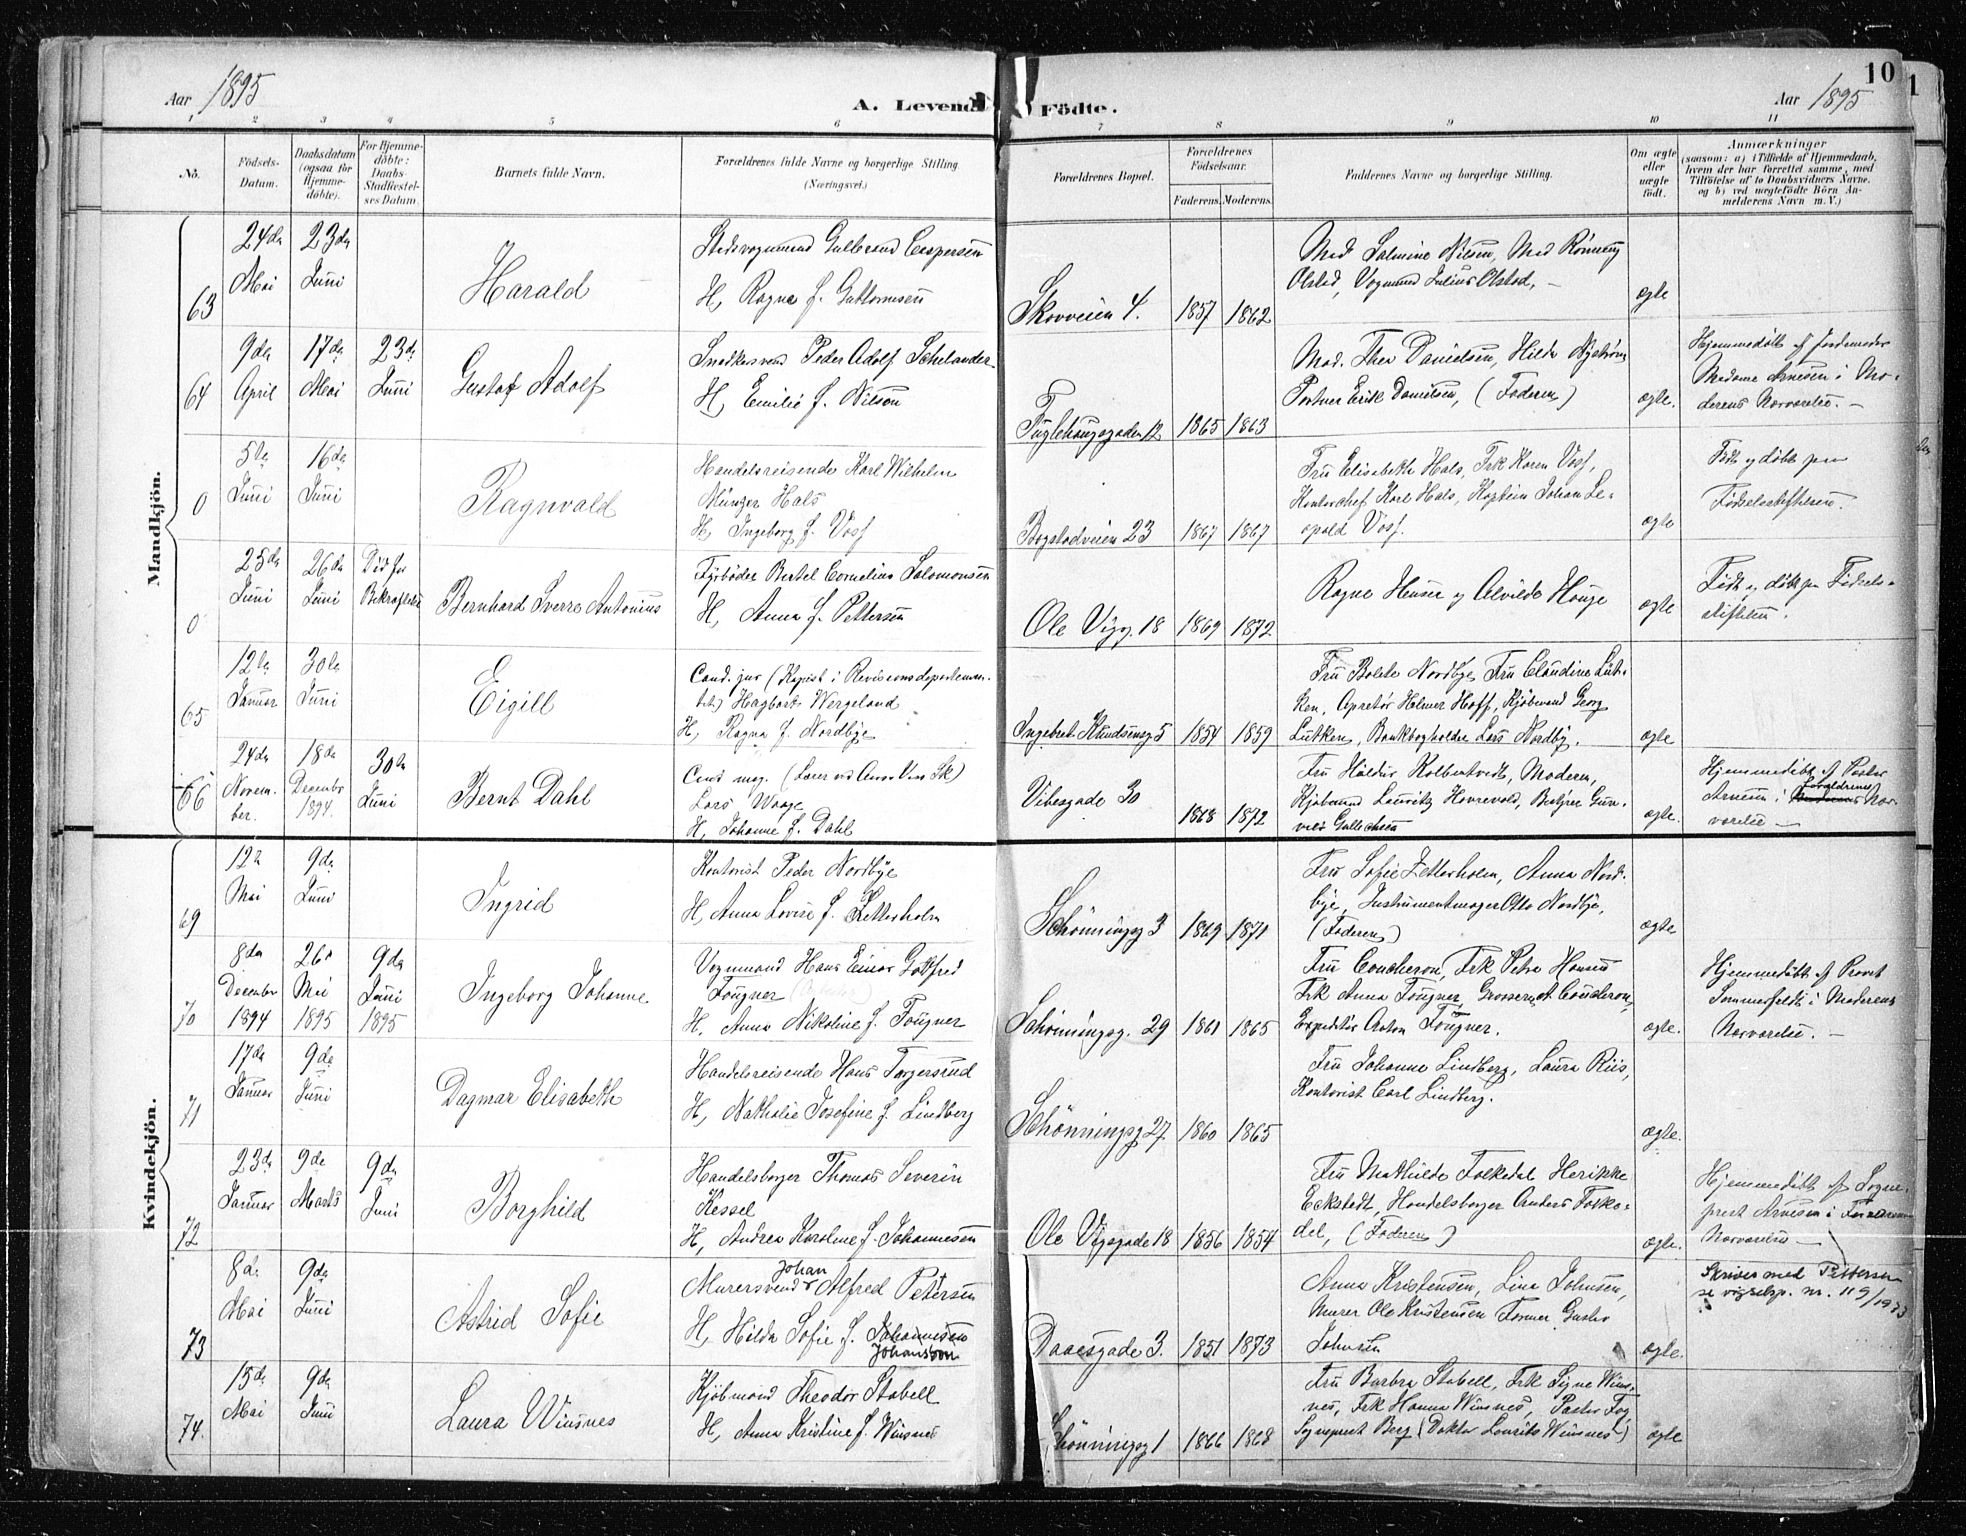 10
Aar 1895
A. Levende Födte.
Aar 1895
1 2 3 4 5 6 7 8 9 10 11
No.
Födsels-
Datum.
Daabsdatum
(ogsaa for
Hjemme-
döbte).
For Hjemme-
döbte:
Daabs
Stadfæstel-
ses Datum.
Barnets fulde Navn.
Forældrenes fulde Navne og borgerlige Stilling
(Næringsvei.)
Forældrenes Bopæl.
Forældrenes
Födselsaar.
Faderens. Moderens.
Faddernes Navne og borgerlige Stilling.
Om ægte
eller
uægte
födt.
Anmærkninger
(saasom: a) i Tilfælde af Hjemmedaab,
hvem der har forrettet samme, med
Tilföielse af to Daabsvidners Navne.
og b) ved uægtefödte Börn An-
melderens Navn m. V.)
Mandkjön.
63
24da
Mai
23da
Juni
Harald
Stadsvognmand Gulbrand Caspersen
H, Ragna f. Guttormsen
Skovveien 4.
1857 1862
Mad Salmine Nilsen, Mad Rønnaug
Olstad, Vognmand Julius Olstad,
ægte
64
9da
April
17da
Mai
23da
Juni
Gustaf Adolf
Snedkersvend Peder Adolf Schelander
H, Emilie f. Nilson
Fuglehaugsgaden 12
1865 1863
Mad. Thea Danielsen, Hilda Nystrøm
Portner Erik Danielsen, (Faderen)
ægte.
Hjemmedøbt af Jordemoder
Madame Arnesen i Mo-
derens Nærværelse. —
0
5te
Juni
16da
Juni
Ragnvald
Handelsreisende Karl Wilhelm
Münzer Hals
H, Ingeborg f. Voss
Bogstadveien 23
1867 1867
Fru Elisabeth Hals, Frk Karen Voss,
Kontorchef Karl Hals, Kaptein Johan Le-
opold Voss.
ægte
Født og døbt paa
Fødselsstiftelsen.
0
25da
Juni
26da
Juni
Død før
Bekræftelsen
Bernhard Sverre Antonius
Fyrbøder Bertel Cornelius Salomonsen
H, Anna f. Pettersen
Ole Vigg. 18
1869 1872
Ragna Hensen og Alvilde Hauge
ægte
Født og døbt paa Fødsels-
stiftelsen.
65
12te
Januar
30te
Juni
Eigill
Cand. jur (Kopist i Revisionsdepartemen-
tet) Hagbart Wergeland
H, Ragna f. Nordbye
Ingebret Knudsensg 5
1854 1859
Fru Bolete Nordbye, Fru Claudine Lüt-
ken, Apretør Holmer Hoff, Kjøbmand Georg
Lutken, Bankbogholder Lars Nordby.
ægte
66
24da
Novem-
ber.
18da
Decembr
1894.
30te
Juni
Bernt Dahl
Cand mag. (Lærer ved Anna Vaas Sk)
Lars Waage
H, Johanne f. Dahl
Vibesgade 30
1868 1872
Fru Haldur Kolbentvedt, Moderen,
Kjøbmand Lauritz Hovrevold, Bestyrer Gun-
ægte.
Hjemmedøbt af Pastor
Forældrenes
Arnesen i Moderens Nær-
værelse —
Kvindekjön.
69
12te
Mai
9da
Juni
Ingrid
Kontorist Peder Nordbye
H, Anna Lovise f. Zetterholm
Schønningsg 3
1869 1871
Fru Sofie Zetterholm, Anna Nord-
bye, Instrumentmager Otto Nordbye,
(Faderen)
ægte
70
8da
December
1894
26da
Mai
1895
9da
Juni
1895
Ingeborg Johanne
Vognmand Hans Einar Gotfred
Fougner
H. Anna Nikoline f. Fougner
Schønningsg. 29
1861 1865
Fru Coucheron, Frk Petra Hansen
Frk Anna Fougner, Grosserer A. Coucheron,
Expeditør Anton Fougner.
ægte.
Hjemmedøbt af Provst
Sommerfeldt i Moderens
Nærværelse. —
71
17da
Januar
9da
Juni
Dagmar Elisabeth
Handelsreisende Hans Torgersrud
H, Nathalie Josefine f. Lindberg
Schønningsg 27.
1860 1865
Fru Johanne Lindberg, Laura Riis,
Kontorist Carl Lindberg.
ægte.
72
23da
Januar
9de
Marts
9da
Juni
Borghild
Handelsborger Thomas Severin
Kessel
H, Andrea Karoline f. Johannesen
Ole Vigsgade 18
1856 1854
Fru Mathilde Folkedal Henrikke
Eckstedt, Handelsborger Anders Folke-
dal, (Faderen)
ægte.
Hjemmedøbt af Sogne-
prest Arnesen i Forældrenes
Nærværelse —
73
8da
Mai
9da
Juni
Astrid Sofie
Johan
Murersvend Alfred Petersen
H, Hilda Sofie f. Johannesen
Johansson
Daaesgade 3.
1851 1873
Anna Kristensen, Lina Johnsen,
Murer Ole Kristensen Former Gustav
Johnsen
ægte.
Skrives med Pettersen
se vigselsp. nr. 119/1923
74.
15da
Mai
9da
Juni
Laura Winsnes
Kjøbmand Theodor Stabell
H, Anna Kristine f. Winsnes
Schønningsg 1
1866 1868
Fru Barbra Stabell, Frk Signe Wins-
nes, Frk Hanna Winsnes, Pastor Fog
Sogneprest Berg (Doktor Laurits Winsnes)
ægte